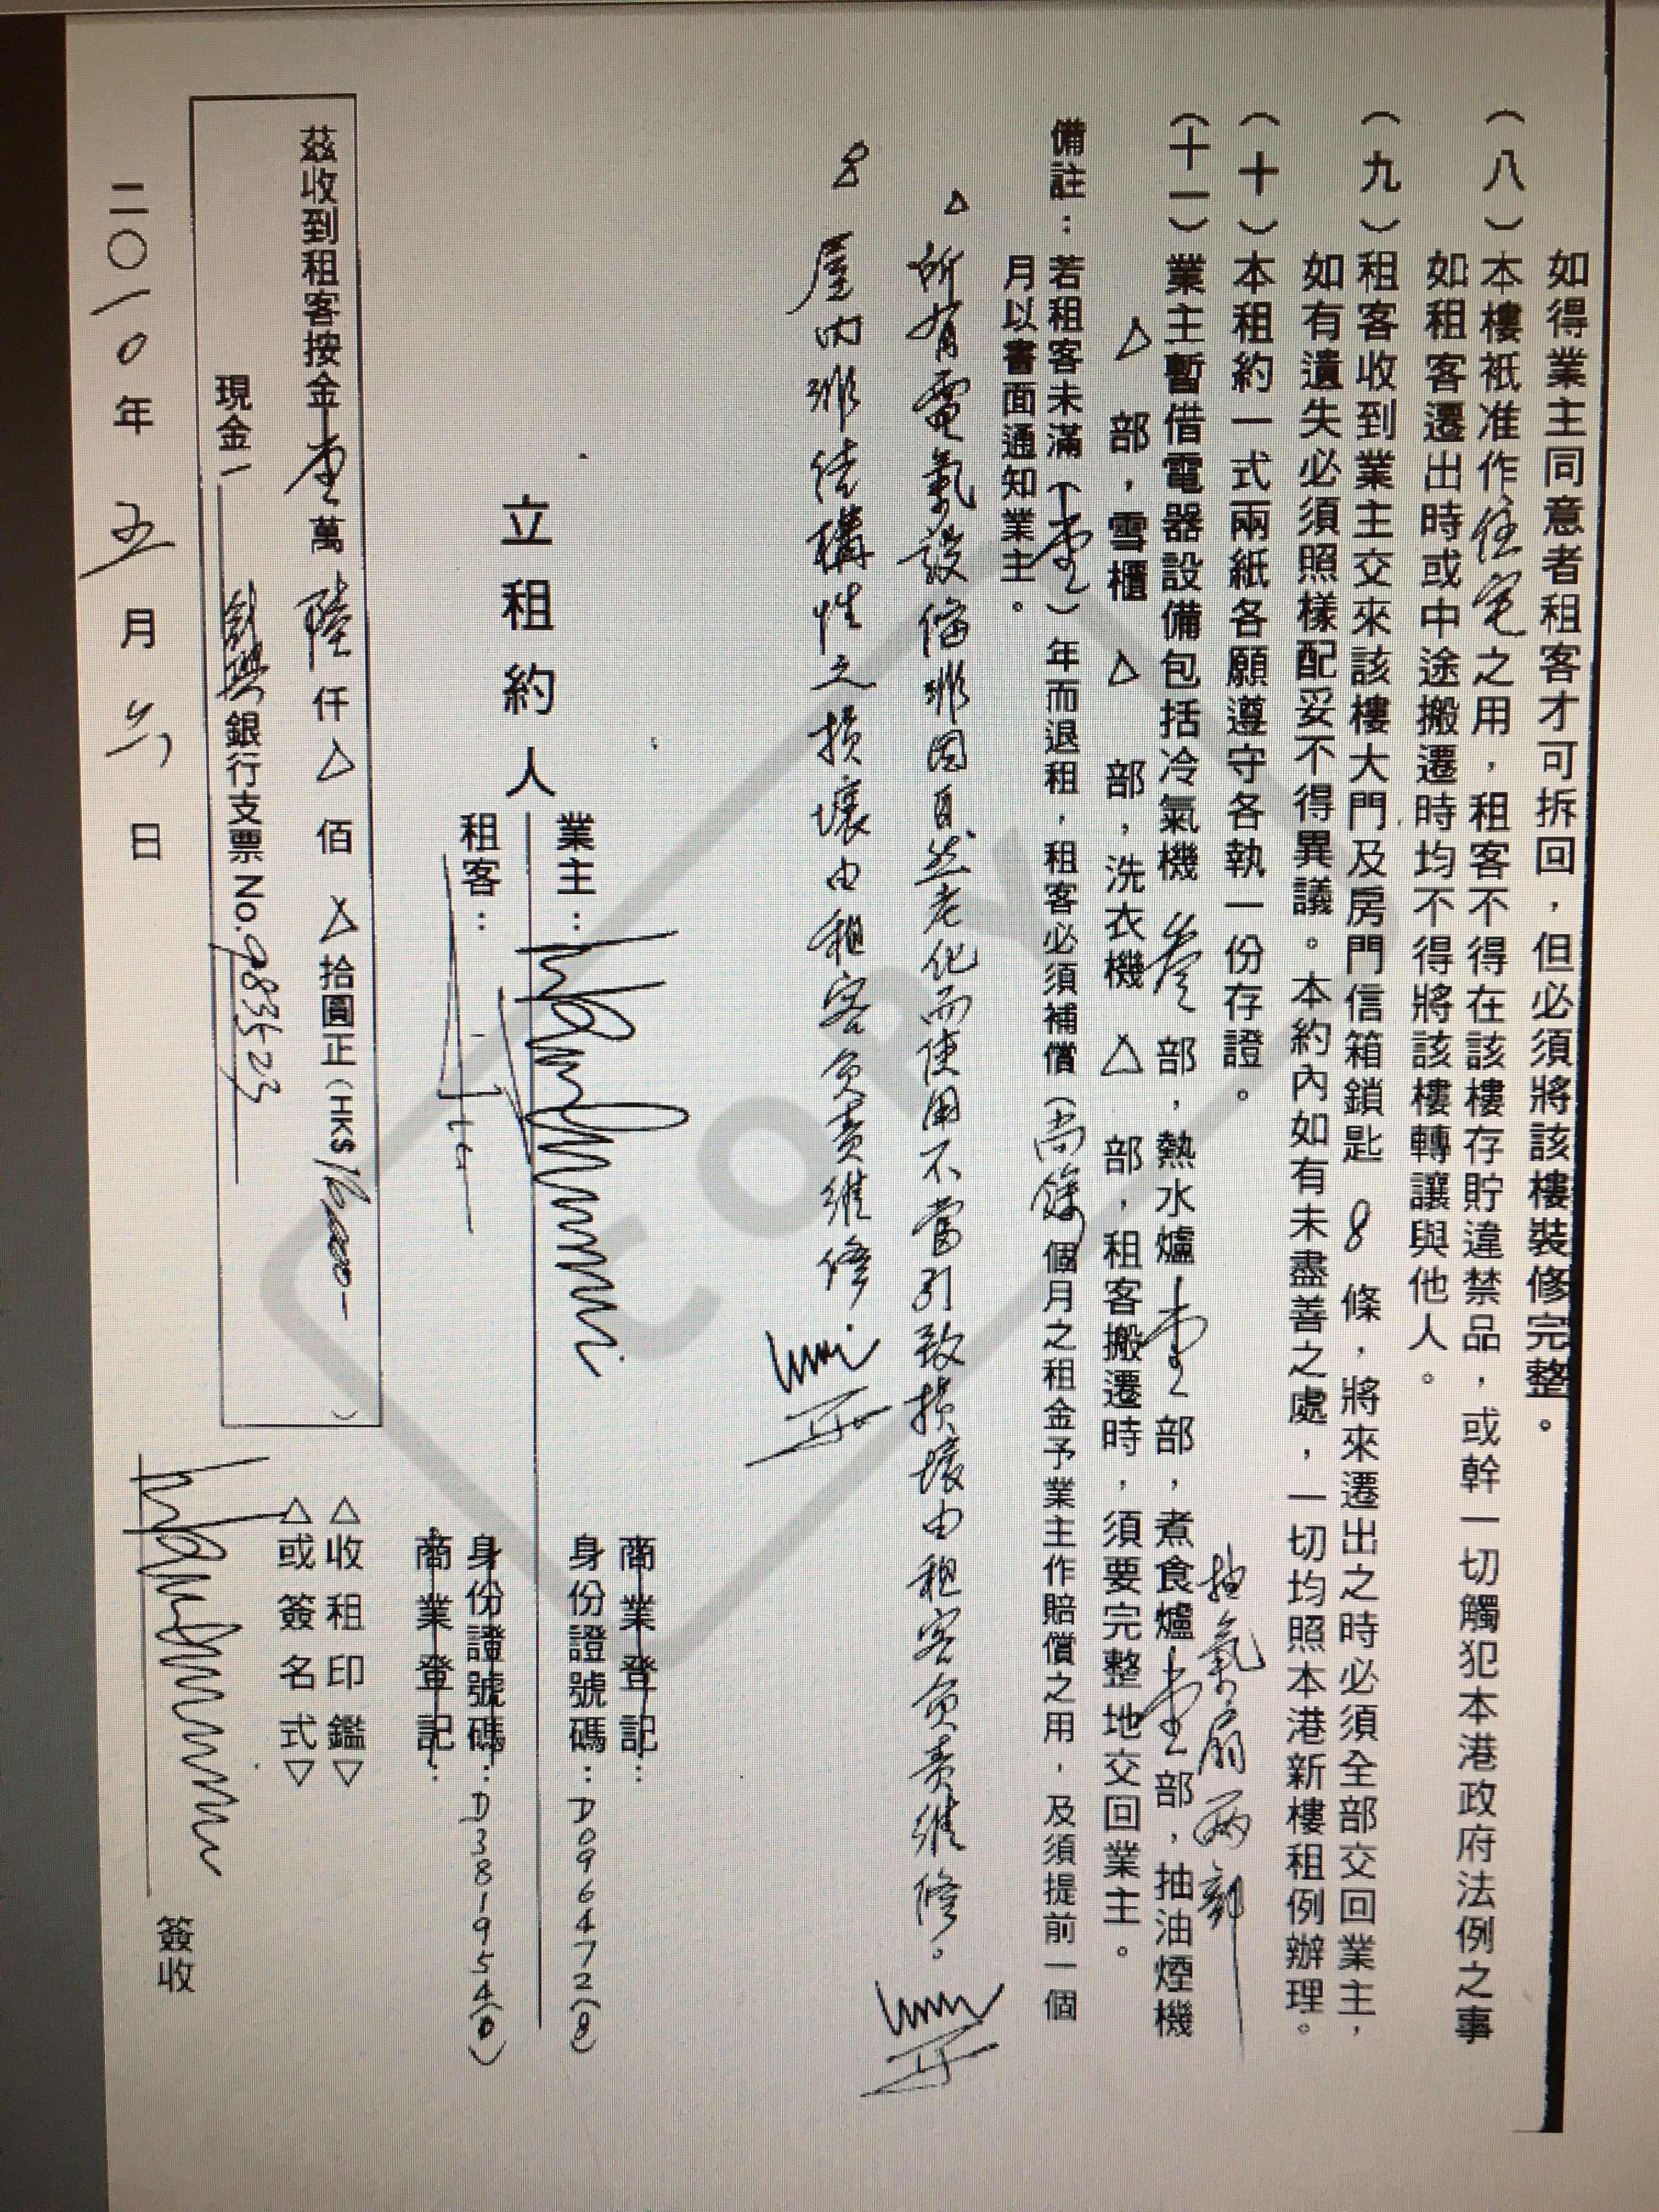 如得業主同意者租客才可拆回，但必須將該樓裝修完整。
（八）本樓衹准作住宅之用，租客不得在該樓存貯違禁品，或幹一切觸犯本港政府法例之事
如租客遷出時或中途搬遷時均不得將該樓轉讓與他人。
（九）租客收到業主交來該樓大門及房門信箱鎖匙 8 條，將來遷出之時必須全部交回業主，
如有遺失必須照樣配妥不得異議。本約內如有未盡善之處，一切均照本港新樓租例辦理。
（十）本租約一式兩紙各願遵守各執一份存證。
抽氣扇兩部
（十一）業主暫借電器設備包括冷氣機 叁 部，熱水爐 壹 部，煮食爐 壹 部，抽油煙機
△ 部，雪櫃 △ 部，洗衣機 △ 部，租客搬遷時，須要完整地交回業主。
備註：若租客未滿（壹）年而退租，租客必須補償（尚餘個月之租金予業主作賠償之用，及須提前一個
月以書面通知業主。
△ 所有電氣設備非因自然老化而使用不當引致損壞由租客負責維修。
8 屋內非結構性之損壞由租客負責維修.
商業登記：
業主： 身份證號碼：D096472(8)
立租約人
租客： 身份證號碼：D381954(0)
商業登記：
茲收到租客按金 壹 萬 陸 仟 △ 佰 △ 拾圓正（HK$16,000-）
△收租印鑑▽
△或簽名式▽
現金 銀行支票 No. 983523
簽收
二〇一0年 五 月 六 日
COPY